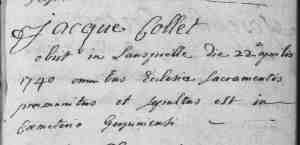 Jacque Collet
obiit in Lansprelle die 22ª aprilis
1740 omnibus Eclesiæ Sacramentis
præmunitus et sepultus est in
Cæmeterio